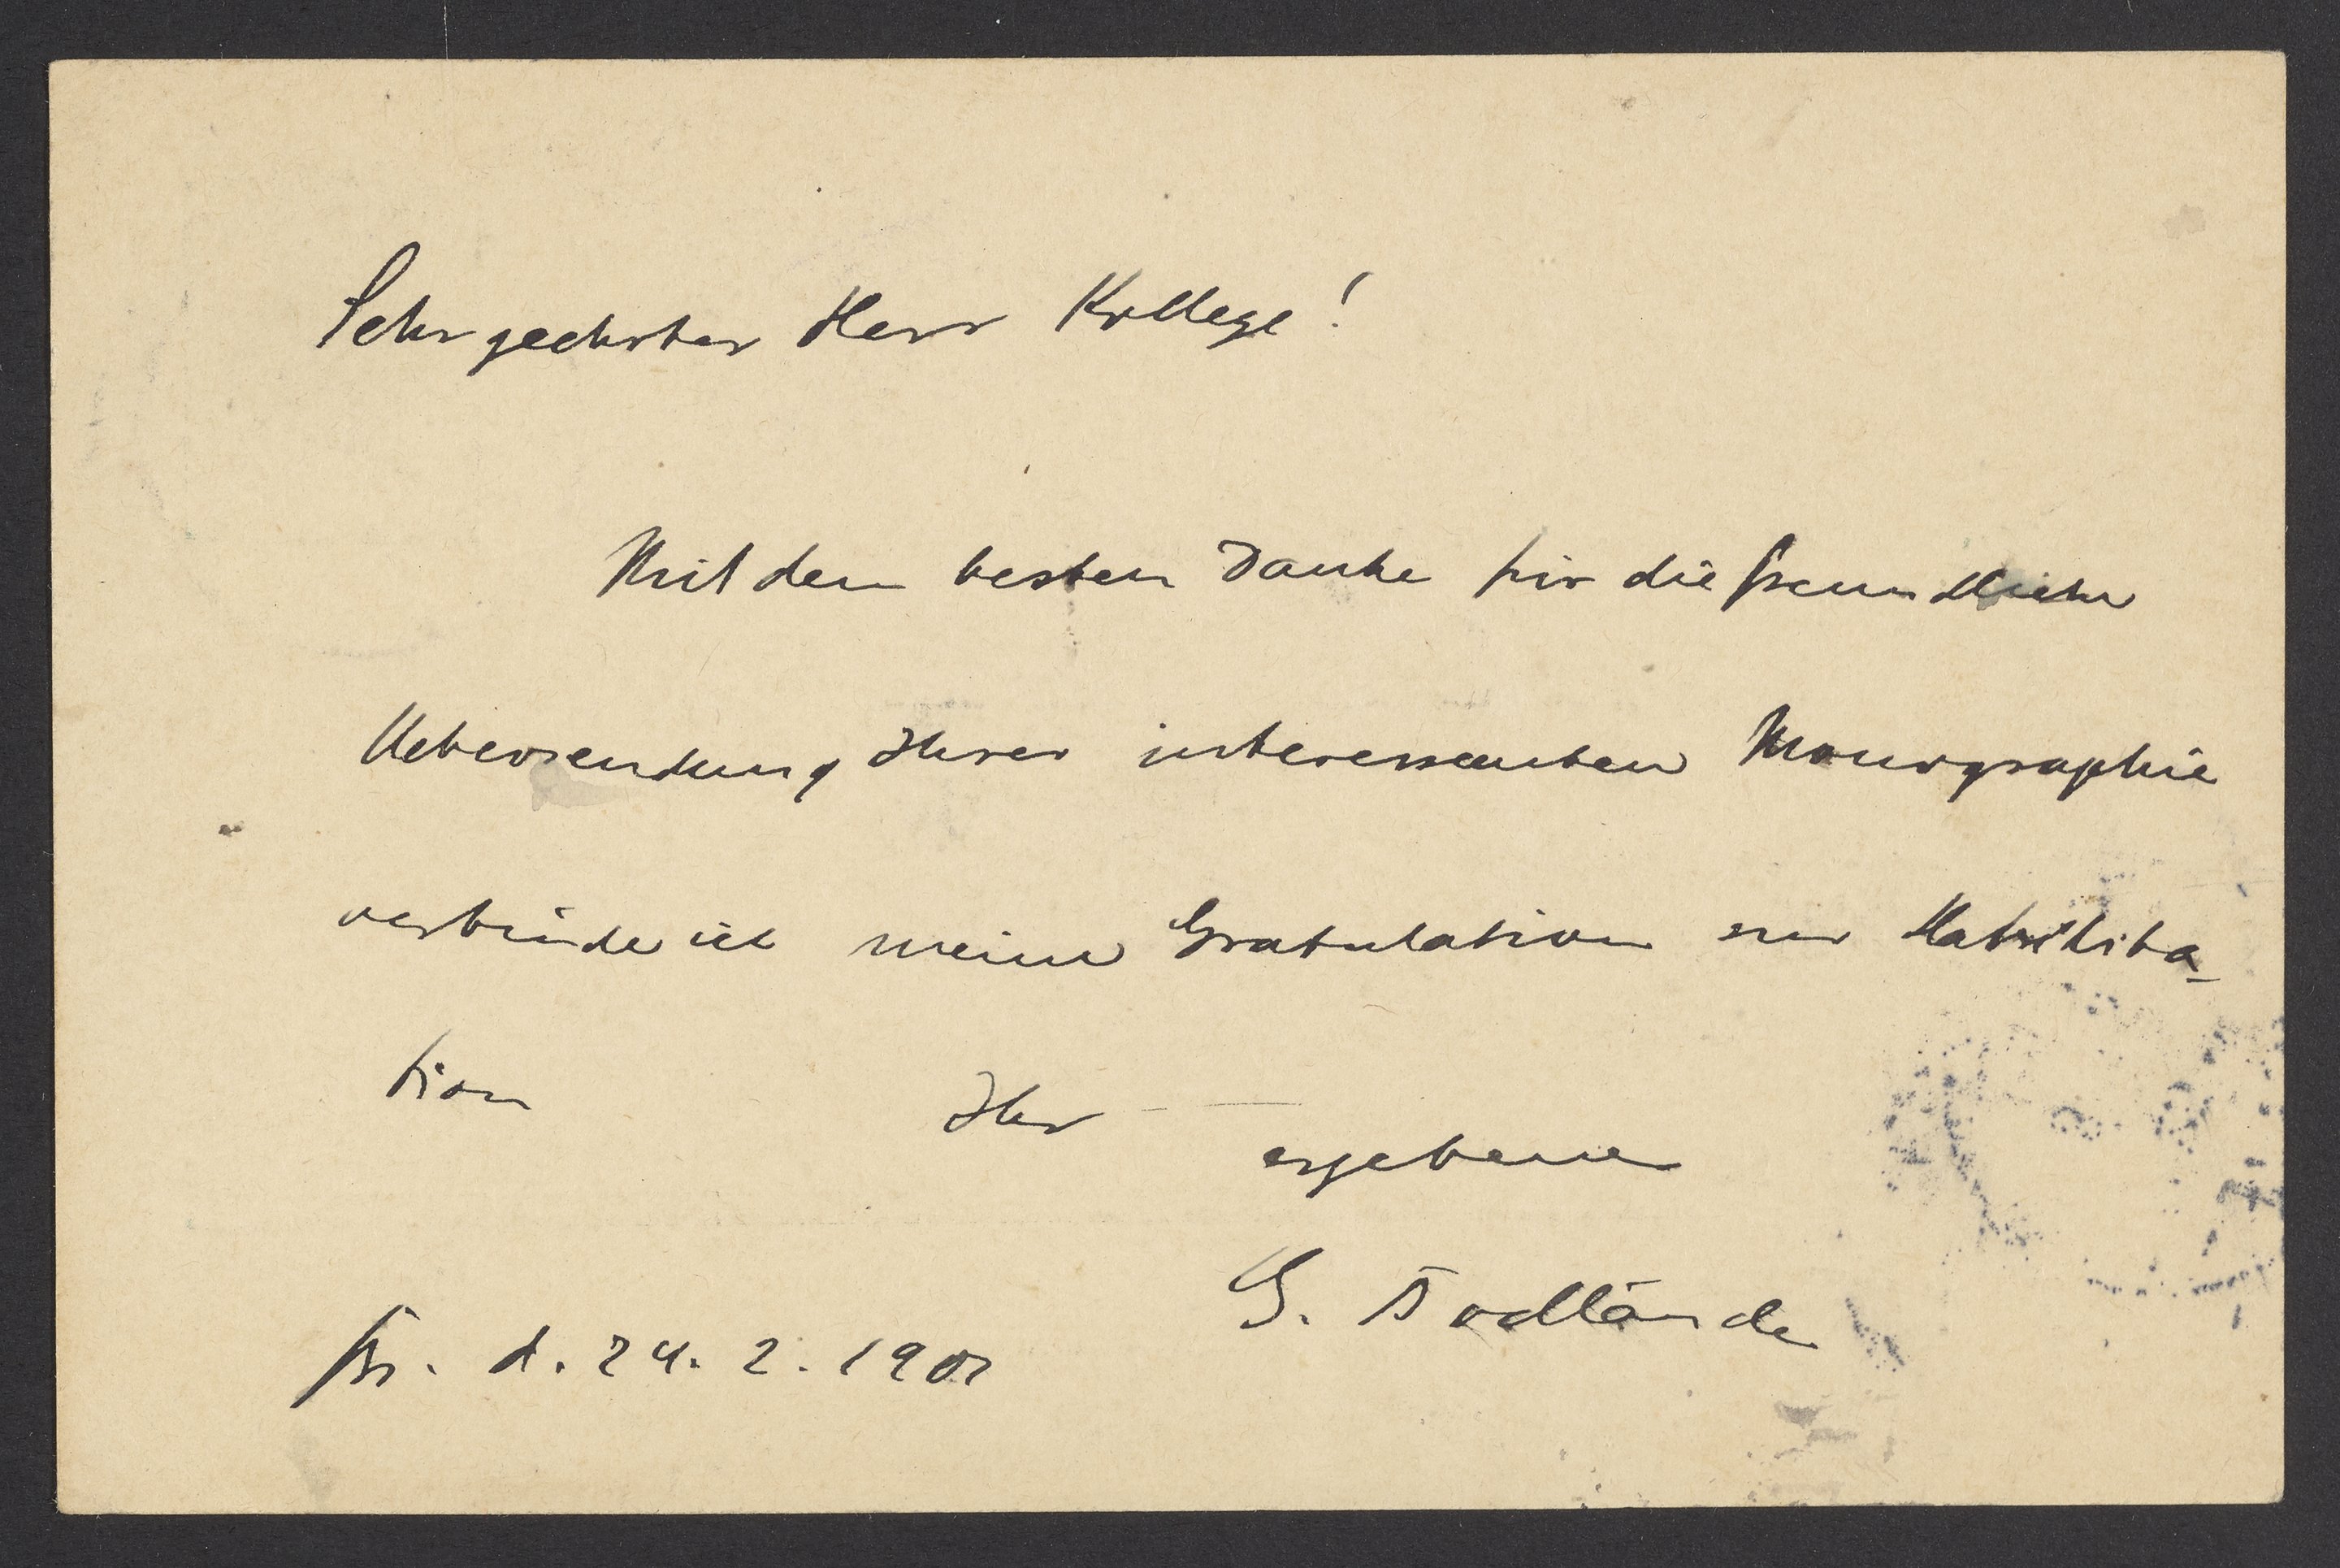 Sehr geehrter Herr Kollege!
Mit dem besten Danke für die freundliche
Uebersendung Ihrer interessanten Monographie
verbinde ich meine Gratulation zur Habilita-
tion Ihr
ergebener
G. Bodländer
Br. d. 24. 2. 1901